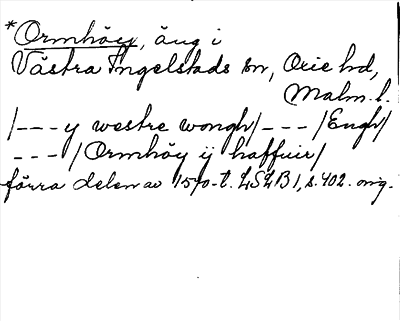 *Ormhöy, äng i
Västra Ingelstads sn, Oxie hd,
Malm. l.
/--- y westre wongh/ --- /Engh/
--- /Ormhöy ij haffuir/
förra delen av 1570-t. LSLB 1, s. 402. orig.